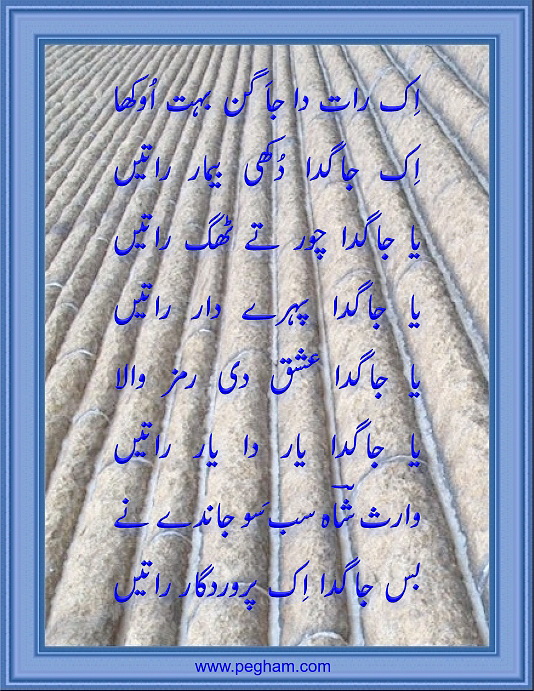 اِک رات دا جاگن بہت اُوکھا
اِک جاگدا دُکھی بیمار راتیں
یا جاگدا چور تے ٹھگ راتیں
یا جاگدا پہرے دار راتیں
یا جاگدا عشق دی رمز والا
یا جاگدا یار دا یار راتیں
وارث شاہ سب سَو جاندے نے
بس جاگدا اِک پروردگار راتیں
www.pegham.com